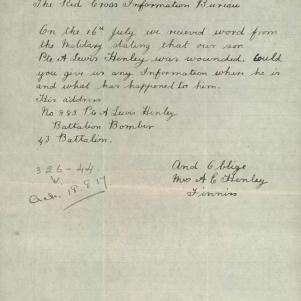 The Red Cross Information Bureau
On the 16th July we recieved word from
the Military stating that our son
Pte A Lewis Henley was wounded. Could
you give us any Information where he is
and what has happened to him.
His address
No 883 Pte A Lewis Henley
Battalion Bomber
43 Battalion.
And Oblige
Mrs A E Henley
Finniss
326-44
Ack. 18.8.17